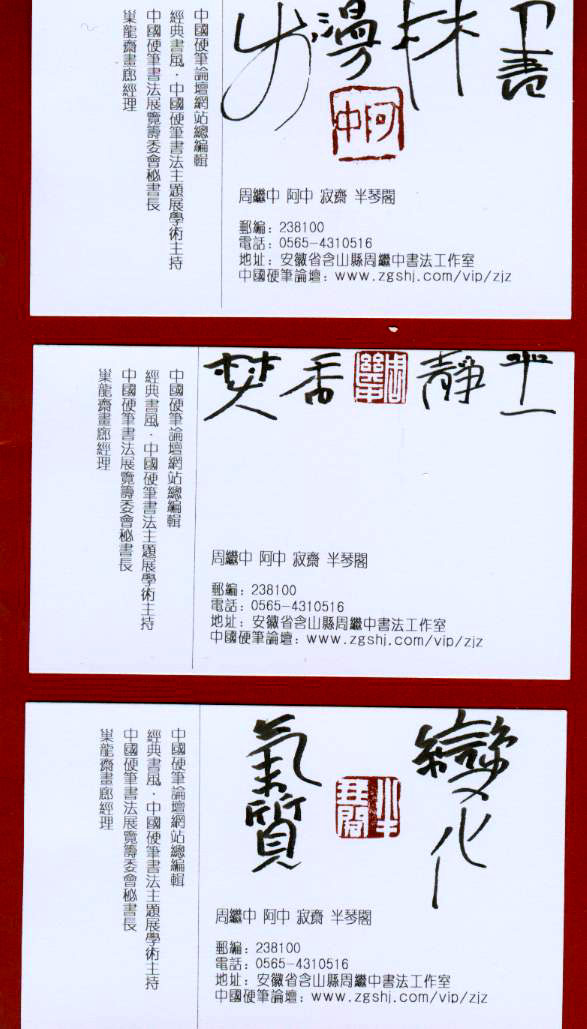 書林漫步
阿中
中國硬筆論壇網站總編輯
經典書風·中國硬筆書法主題展學術主持
中國硬筆書法展覽籌委會秘書長
巢龍齋畫廊經理
周繼中 阿中 寂齋 半琴閣
郵編：238100
電話：0565-4310516
地址：安徽省含山縣周繼中書法工作室
中國硬筆論壇：www.zgshj.com/vip/zjz
焚香靜坐
周繼中
中國硬筆論壇網站總編輯
經典書風·中國硬筆書法主題展學術主持
中國硬筆書法展覽籌委會秘書長
巢龍齋畫廊經理
周繼中 阿中 寂齋 半琴閣
郵編：238100
電話：0565-4310516
地址：安徽省含山縣周繼中書法工作室
中國硬筆論壇：www.zgshj.com/vip/zjz
變化
氣質
半琴閣
中國硬筆論壇網站總編輯
經典書風·中國硬筆書法主題展學術主持
中國硬筆書法展覽籌委會秘書長
巢龍齋畫廊經理
周繼中 阿中 寂齋 半琴閣
郵編：238100
電話：0565-4310516
地址：安徽省含山縣周繼中書法工作室
中國硬筆論壇：www.zgshj.com/vip/zjz